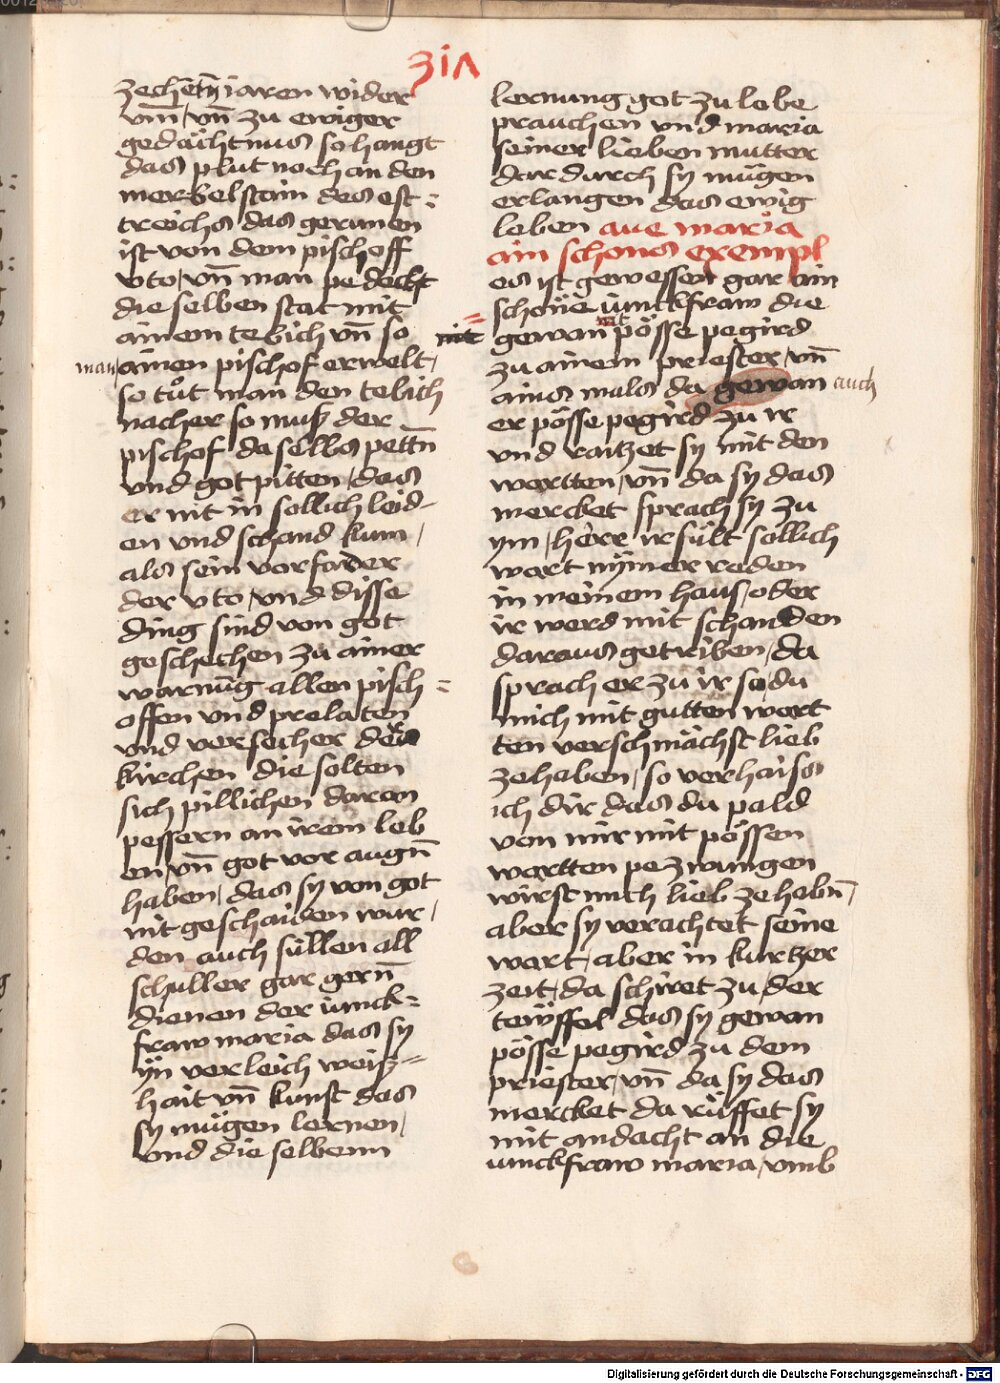 317
zechētn̄ iaren wider
vm̄, vn̄ zu ewiger
gedächtnus so hangt
das plut noch an den
merbelstain des est :
treichs das gerunen
ist von dem pischoff
vto, vn̄ man pe deckt
die selben stat mit
ainem tebich vn̄ so
man ainen pischof erwelt,
so tůt man den tebich
nacher so muß der
pischof daselbs pettn̄
vnd got pitten, das
er nit in sollich leid-
en vnd schand kum,
als sein vorfader
der vto, vnd disse
ding sind von got
geschechen zu ainer
warnūg allen pisch =
offen vnd prelaten
vnd versecher der
kirchen die solten
sich pillichen daran
pessern an irem leb
en, vn̄ got vor augn̄
haben, das sy von got
nit geschaiden wur,
den auch süllen all
schuller gar gern̄
dienen der iunck =
fraw maria das sy
yn verleich weiß =
hait vn̄ kunst das
sy mügen lernen,
vnd die selbenn
lernung got zu lobe
prauchen vnd maria
seiner lieben mutter
dardurch sy mügen
erlangen das ewig
leben aue maria
ain schons exempl
es ist gewessen gar ain
schöne iunckfraw die
nit gewan pösse pegird
zu ainem priester, vn̄
ains mals da gewan auch
er pösse pegird zu ir
vnd raitzet sy mit den
wortten, vn̄ da sy das
mercket sprach sy zu
ym, herr ir sült sollich
wort nymer reden
in meinem haus, oder
ir werd mit schanden
daraus getriben, da
sprach er zu ir so du
mich mit gutten wort
ten verschmächst lieb
ze haben, so verhaiss
ich dir das du pald
von mir mit pössen
wortten pezwungen
wirst mich lieb ze habn̄,
aber sy verachtet seine
wort, aber in kurtzer
zeit, da schiret zu der
tewffel das sy gewan
pösse pegird zu dem
priester, vn̄ da sy das
mercket da rüffet sy
mit andacht an die
iunckfraw maria, vmb
Digitalisierung gefördert durch die Deutsche Forschungsgemeinschaft - DFG